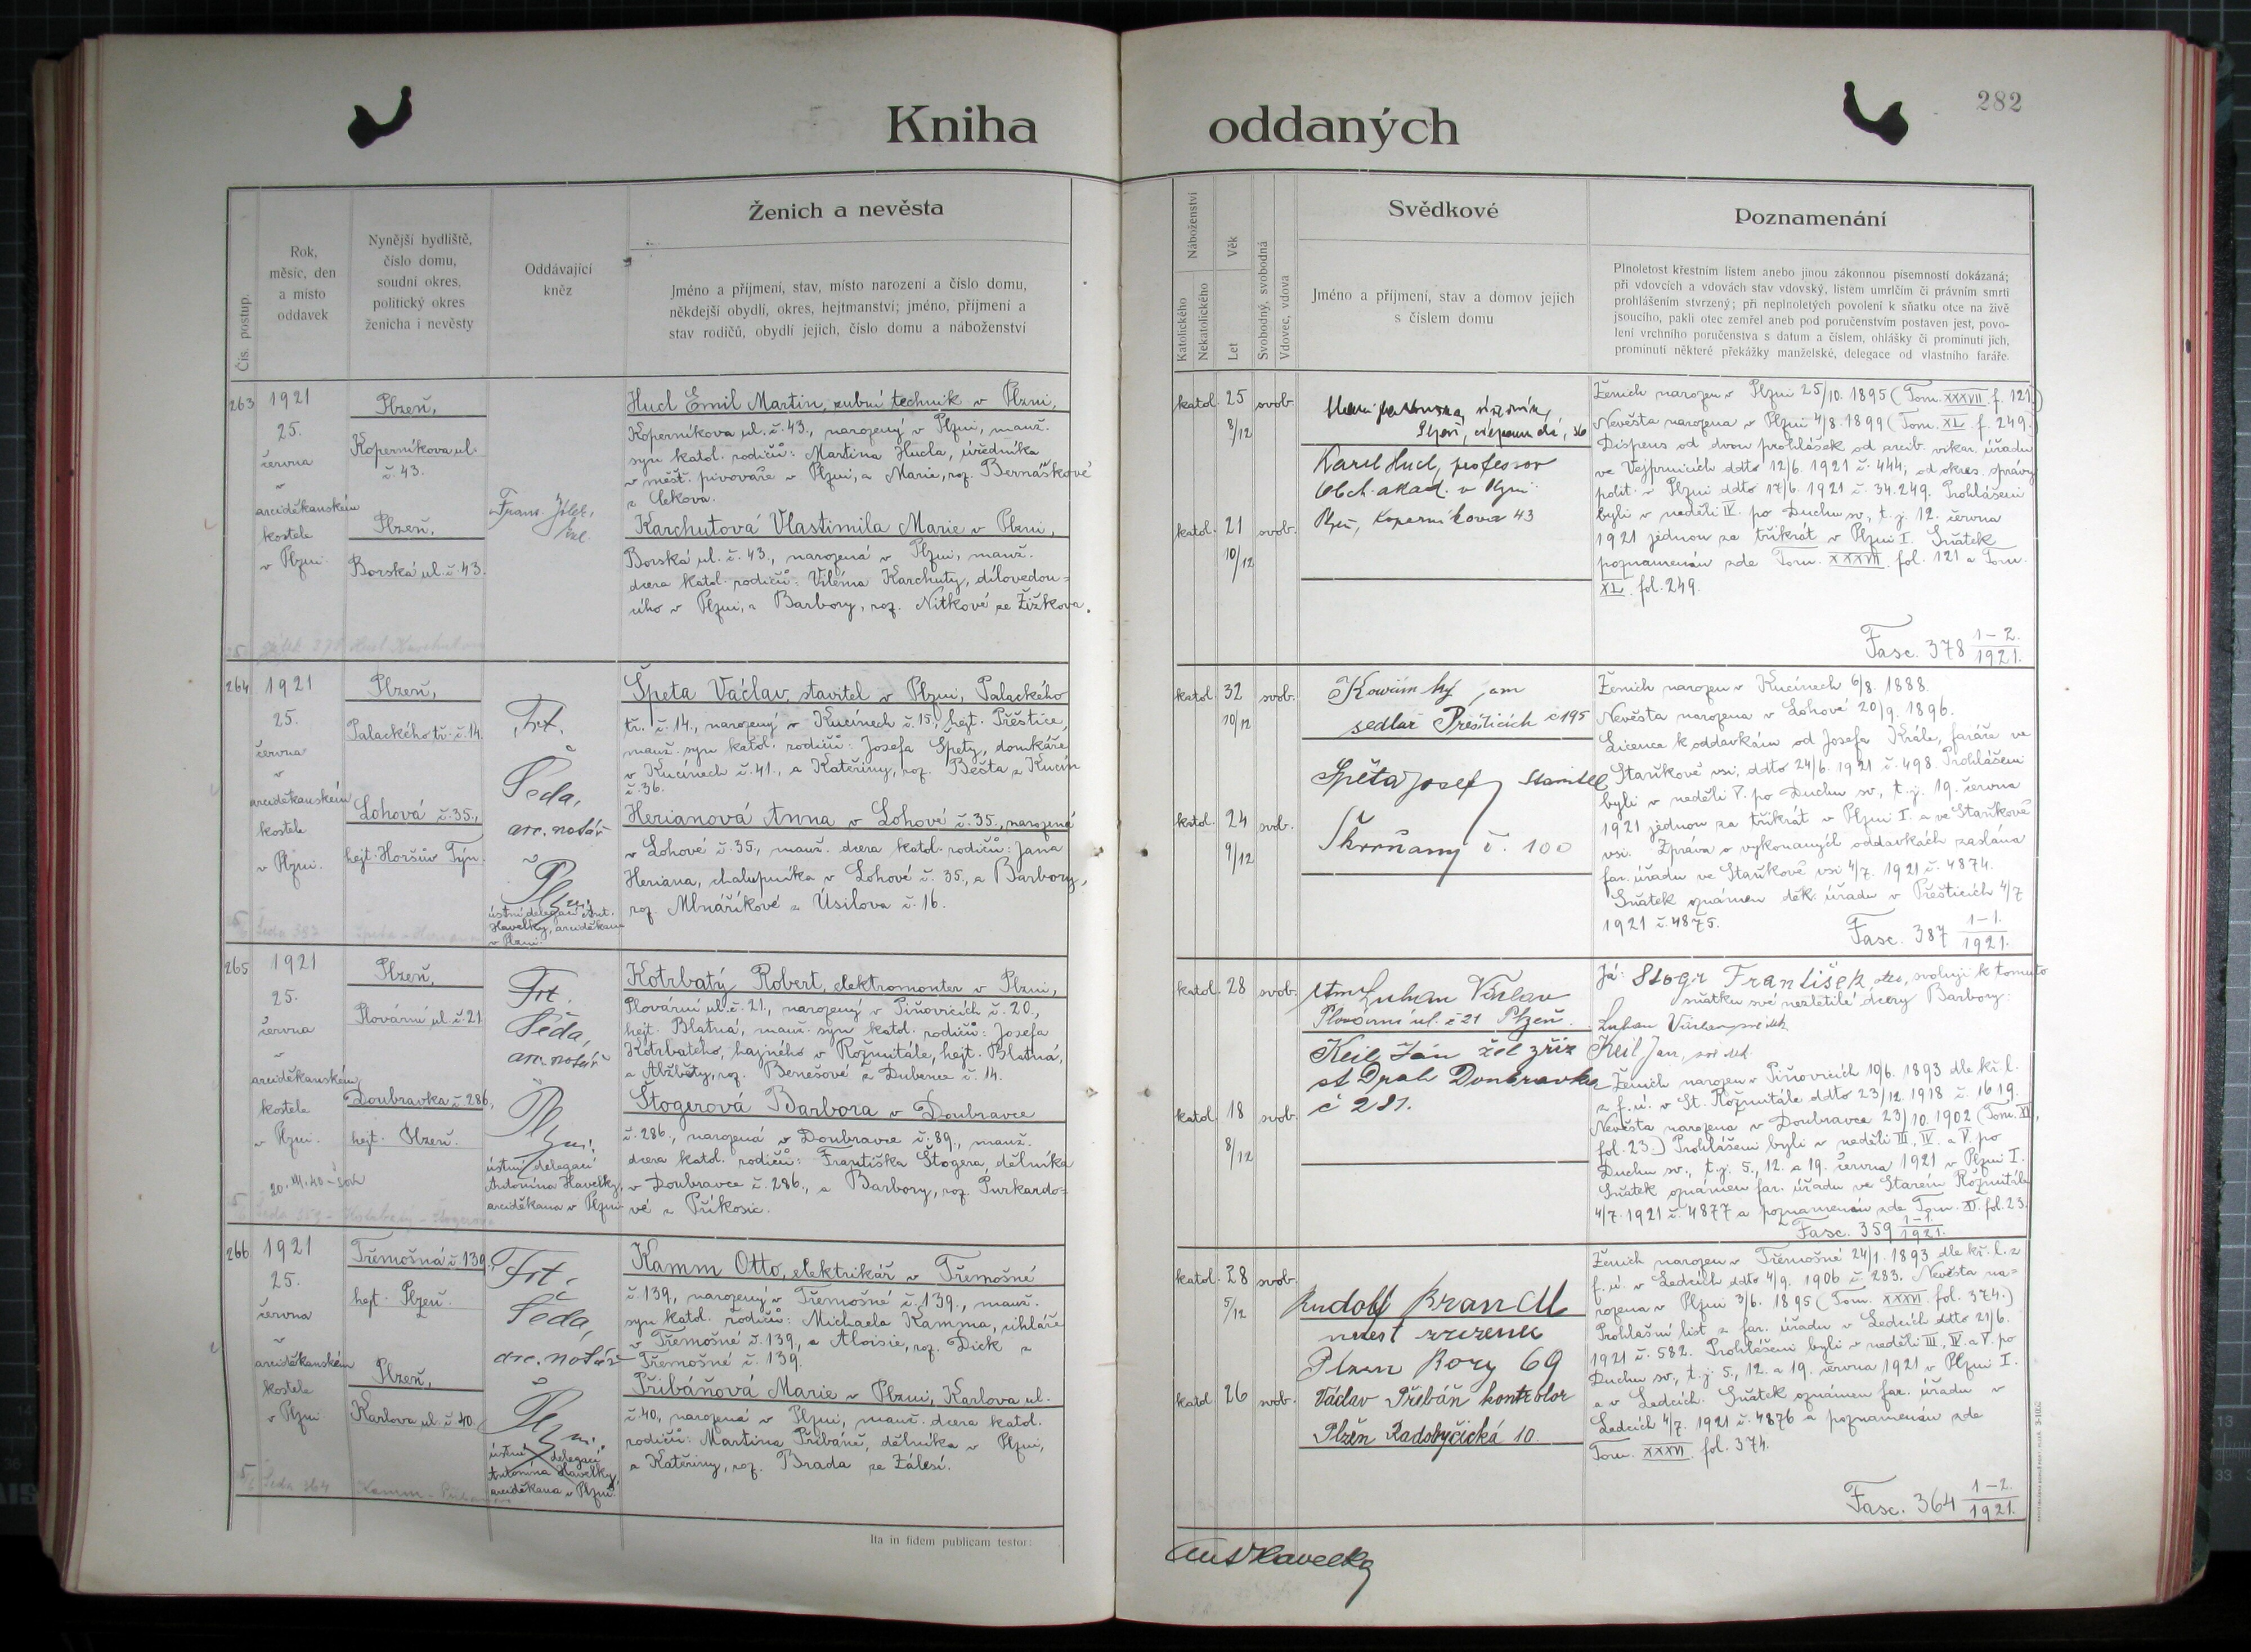 282
Kniha oddaných
Čís. postup.
Rok,
měsíc, den
a místo
oddavek
Nynější bydliště,
číslo domu,
soudní okres,
politický okres
ženicha i nevěsty
Oddávající
kněz
Ženich a nevěsta
Jméno a příjmení, stav, místo narození a číslo domu,
někdejší obydlí, okres, hejtmanství; jméno, příjmení a
stav rodičů, obydlí jejich, číslo domu a náboženství
Náboženství
Katolického
Nekatolického
Věk
Let
Svobodný, svobodná
Vdovec, vdova
Svědkové
Jméno a příjmení, stav a domov jejich
s číslem domu
Poznamenání
Plnoletost křestním listem anebo jinou zákonnou písemností dokázaná;
při vdovcích a vdovách stav vdovský, listem úmrtčím či právním smrti
prohlášením stvrzený; při neplnoletých povolení k sňatku otce na živě
jsoucího, pakli otec zemřel aneb pod poručenstvím postaven jest, povo-
lení vrchního poručenstva s datum a číslem, ohlášky či prominutí jich,
prominutí některé překážky manželské, delegace od vlastního faráře.
263
1921
25.
června
v
arciděkanském
kostele
v Plzni.
Plzeň,
Koperníkova ul.
č. 43.
Plzeň,
Borská ul. č. 43.
Frant.
Hucl Emil Martin, zubní technik v Plzni,
Koperníkova ul. č. 43., narozený v Plzni, manž.
syn katol. rodičů: Martina Hucla, úředníka
v měšt. pivováře v Plzni, a Marie, roz. Bernáškové
z Čekova.
Karchutová Vlastimila Marie v Plzni,
Borská ul. č. 43., narozená v Plzni, manž.
dcera katol. rodičů: Viléma Karchuty, dílovedou-
cího v Plzni, a Barbory, roz. Nitkové ze Žižkova.
katol. 25 svob.
8/12
katol. 21 svob.
10/12
Karel Hucl, professor
obch. akad. v Plzni.
Plzeň, Koperníkova 43
Ženich narozen v Plzni 25/10. 1895 (Tom. XXXVII. f. 121.)
Nevěsta narozena v Plzni 4/8. 1899 (Tom. XL. f. 249.)
Dispens od dvou prohlášek od arcib. vikar. úřadu
ve Vejprnicích ddto 12/6. 1921 č. 444, od okres. správy
polit. v Plzni ddto 17/6. 1921 č. 34.249. Prohlášeni
byli v neděli IV. po Duchu sv., t. j. 12. června
1921 jednou za třikrát v Plzni I. Sňatek
poznamenán zde Tom. XXXVII. fol. 121 a Tom.
XL. fol. 249.
Fasc. 378 1-2./1921.
264
1921
25.
června
v
arciděkanském
kostele
v Plzni.
Plzeň,
Palackého tř. č. 14.
Lohová č. 35.,
hejt. Horšův Týn.
Frt.
Šeda,
arc. notář
Plzni.
ústní delegací Ant.
Havelky, arciděkana
v Plzni.
Špeta Václav, stavitel v Plzni, Palackého
tř. č. 14., narozený v Kucínech č. 15., hejt. Přeštice,
manž. syn katol. rodičů: Josefa Špety, domkáře
v Kucínech č. 41., a Kateřiny, roz. Běšta z Kucín
č. 36.
Herianová Anna v Lohové č. 35., narozená
v Lohové č. 35., manž. dcera katol. rodičů: Jana
Heriana, chalupníka v Lohové č. 35., a Barbory,
roz. Mlnáříkové z Úsilova č. 16.
katol. 32 svob.
10/12
katol. 24 svob.
9/12
sedlář Přešticích č 195
Špéta Josef stavitel
Škvrňany č. 100
Ženich narozen v Kucínech 6/8. 1888.
Nevěsta narozena v Lohové 20/9. 1896.
Licence k oddavkám od Josefa Krále, faráře ve
Staňkově vsi, ddto 24/6. 1921 č. 498. Prohlášeni
byli v neděli V. po Duchu sv., t. j. 19. června
1921 jednou za třikrát v Plzni I. a ve Staňkově
vsi. Zpráva o vykonaných oddavkách zaslána
far. úřadu ve Staňkově vsi 4/7. 1921 č. 4874.
Sňatek oznámen děk. úřadu v Přešticích 4/7
1921 č. 4875.
Fasc. 387 1-1./1921.
265
1921
25.
června
v
arciděkanském
kostele
v Plzni.
Plzeň,
Plovární ul. č. 21
Doubravka č. 286,
hejt. Plzeň.
Frt.
Šeda,
arc. notář
Plzni.
ústní delegací
Antonína Havelky,
arciděkana v Plzni
Kotrbatý Robert, elektromonter v Plzni,
Plovární ul. č. 21., narozený v Piňovicích č. 20.,
hejt. Blatná, manž. syn katol. rodičů: Josefa
Kotrbatého, hajného v Rožmitále, hejt. Blatná,
a Alžběty, roz. Benešové z Dubence č. 14.
Štogerová Barbora v Doubravce
č. 286., narozená v Doubravce č. 89., manž.
dcera katol. rodičů: Františka Štogera, dělníka
v Doubravce č. 286., a Barbory, roz. Purkardo-
vé z Příkosic.
katol. 28 svob.
katol. 18 svob.
8/12
Luhan Václav
Plovární ul. č 21 Plzeň.
Keil Ján žel zříz
st Drah Doubravka
č 281.
Já: Stogr František, otec, svoluji k tomuto
sňatku své nezletilé dcery Barbory:
Luhan Václav svědek
Keil Jan, svědek.
Ženich narozen v Piňovicích 10/6. 1893 dle kř. l.
z f. ú. v St. Rožmitále ddto 23/12. 1918 č. 1619.
Nevěsta narozena v Doubravce 23/10. 1902 (Tom. XI,
fol. 23.) Prohlášeni byli v neděli III., IV. a V. po
Duchu sv., t. j. 5., 12. a 19. června 1921 v Plzni I.
Sňatek oznámen far. úřadu ve Starém Rožmitále
4/7. 1921 č. 4877 a poznamenán zde Tom. XI. fol. 23.
Fasc. 359 1-1./1921.
266
1921
25.
června
v
arciděkanském
kostele
v Plzni
Třemošná č. 139
hejt. Plzeň.
Plzeň,
Karlova ul. č. 40.
Frt.
Šeda,
arc. notář
Plzni.
ústní delegací
Antonína Havelky,
arciděkana v Plzni.
Kamm Otto, elektrikář v Třemošné
č. 139, narozený v Třemošné č. 139., manž.
syn katol. rodičů: Michaela Kamma, cihláře
v Třemošné č. 139., a Aloisie, roz. Dick z
Třemošné č. 139.
Přibáňová Marie v Plzni, Karlova ul.
č. 40, narozená v Plzni, manž. dcera katol.
rodičů: Martina Přibáně, dělníka v Plzni,
a Kateřiny, roz. Brada ze Zálesí.
katol. 28 svob.
5/12
katol. 26 svob.
Rudolf Brandl
Plzen Bory 69
Václav Přibáň kontrolor
Plzěň Radobyčická 10.
Ženich narozen v Třemošné 24/1. 1893 dle kř. l. z
f. ú. v Ledcích ddto 4/9. 1906 č. 283. Nevěsta na-
rozena v Plzni 3/6. 1895 (Tom. XXXVI. fol. 374.)
Prohlašní list z far. úřadu v Ledcích ddto 21/6.
1921 č. 582. Prohlášeni byli v neděli III., IV. a V. po
Duchu sv., t. j. 5., 12. a 19. června 1921 v Plzni I.
a v Ledcích. Sňatek oznámen far. úřadu v
Ledcích 4/7. 1921 č. 4876 a poznamenán zde
Tom. XXXVI. fol. 374.
Fasc. 364 1-2./1921.
Ita in fidem publicam testor:
Ant Havelka